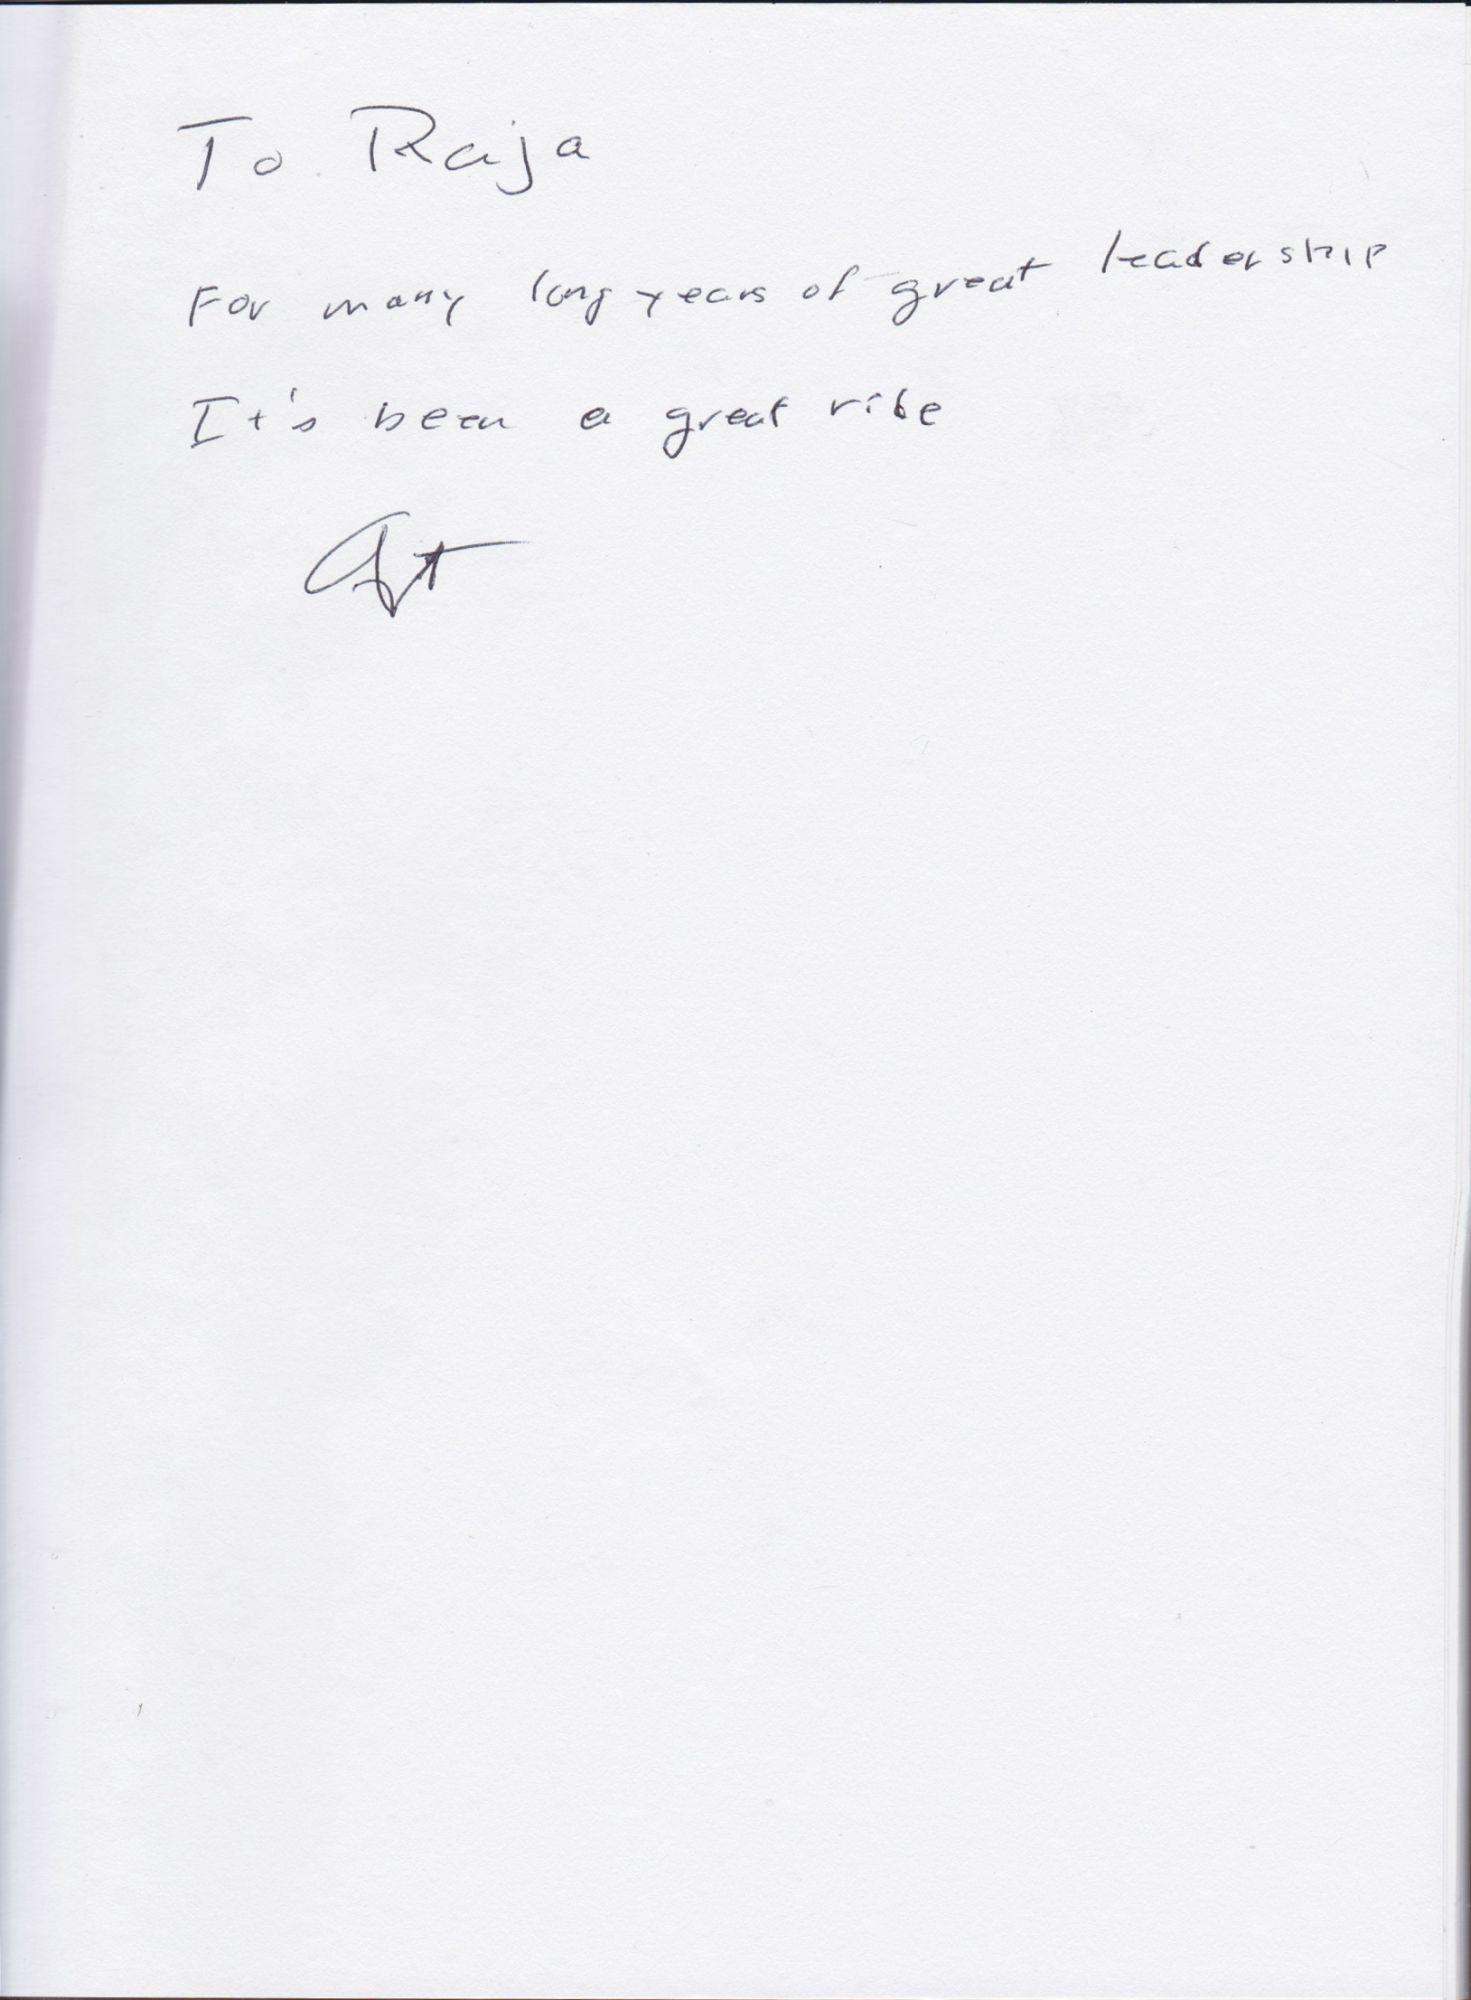 To Raja
For many long years of great leadership
It's been a great ride